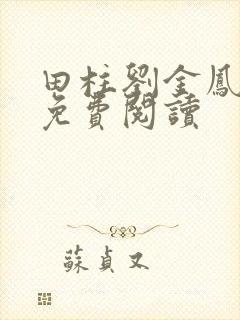 田柱劉金鳳
免費閱讀
蘇貞又